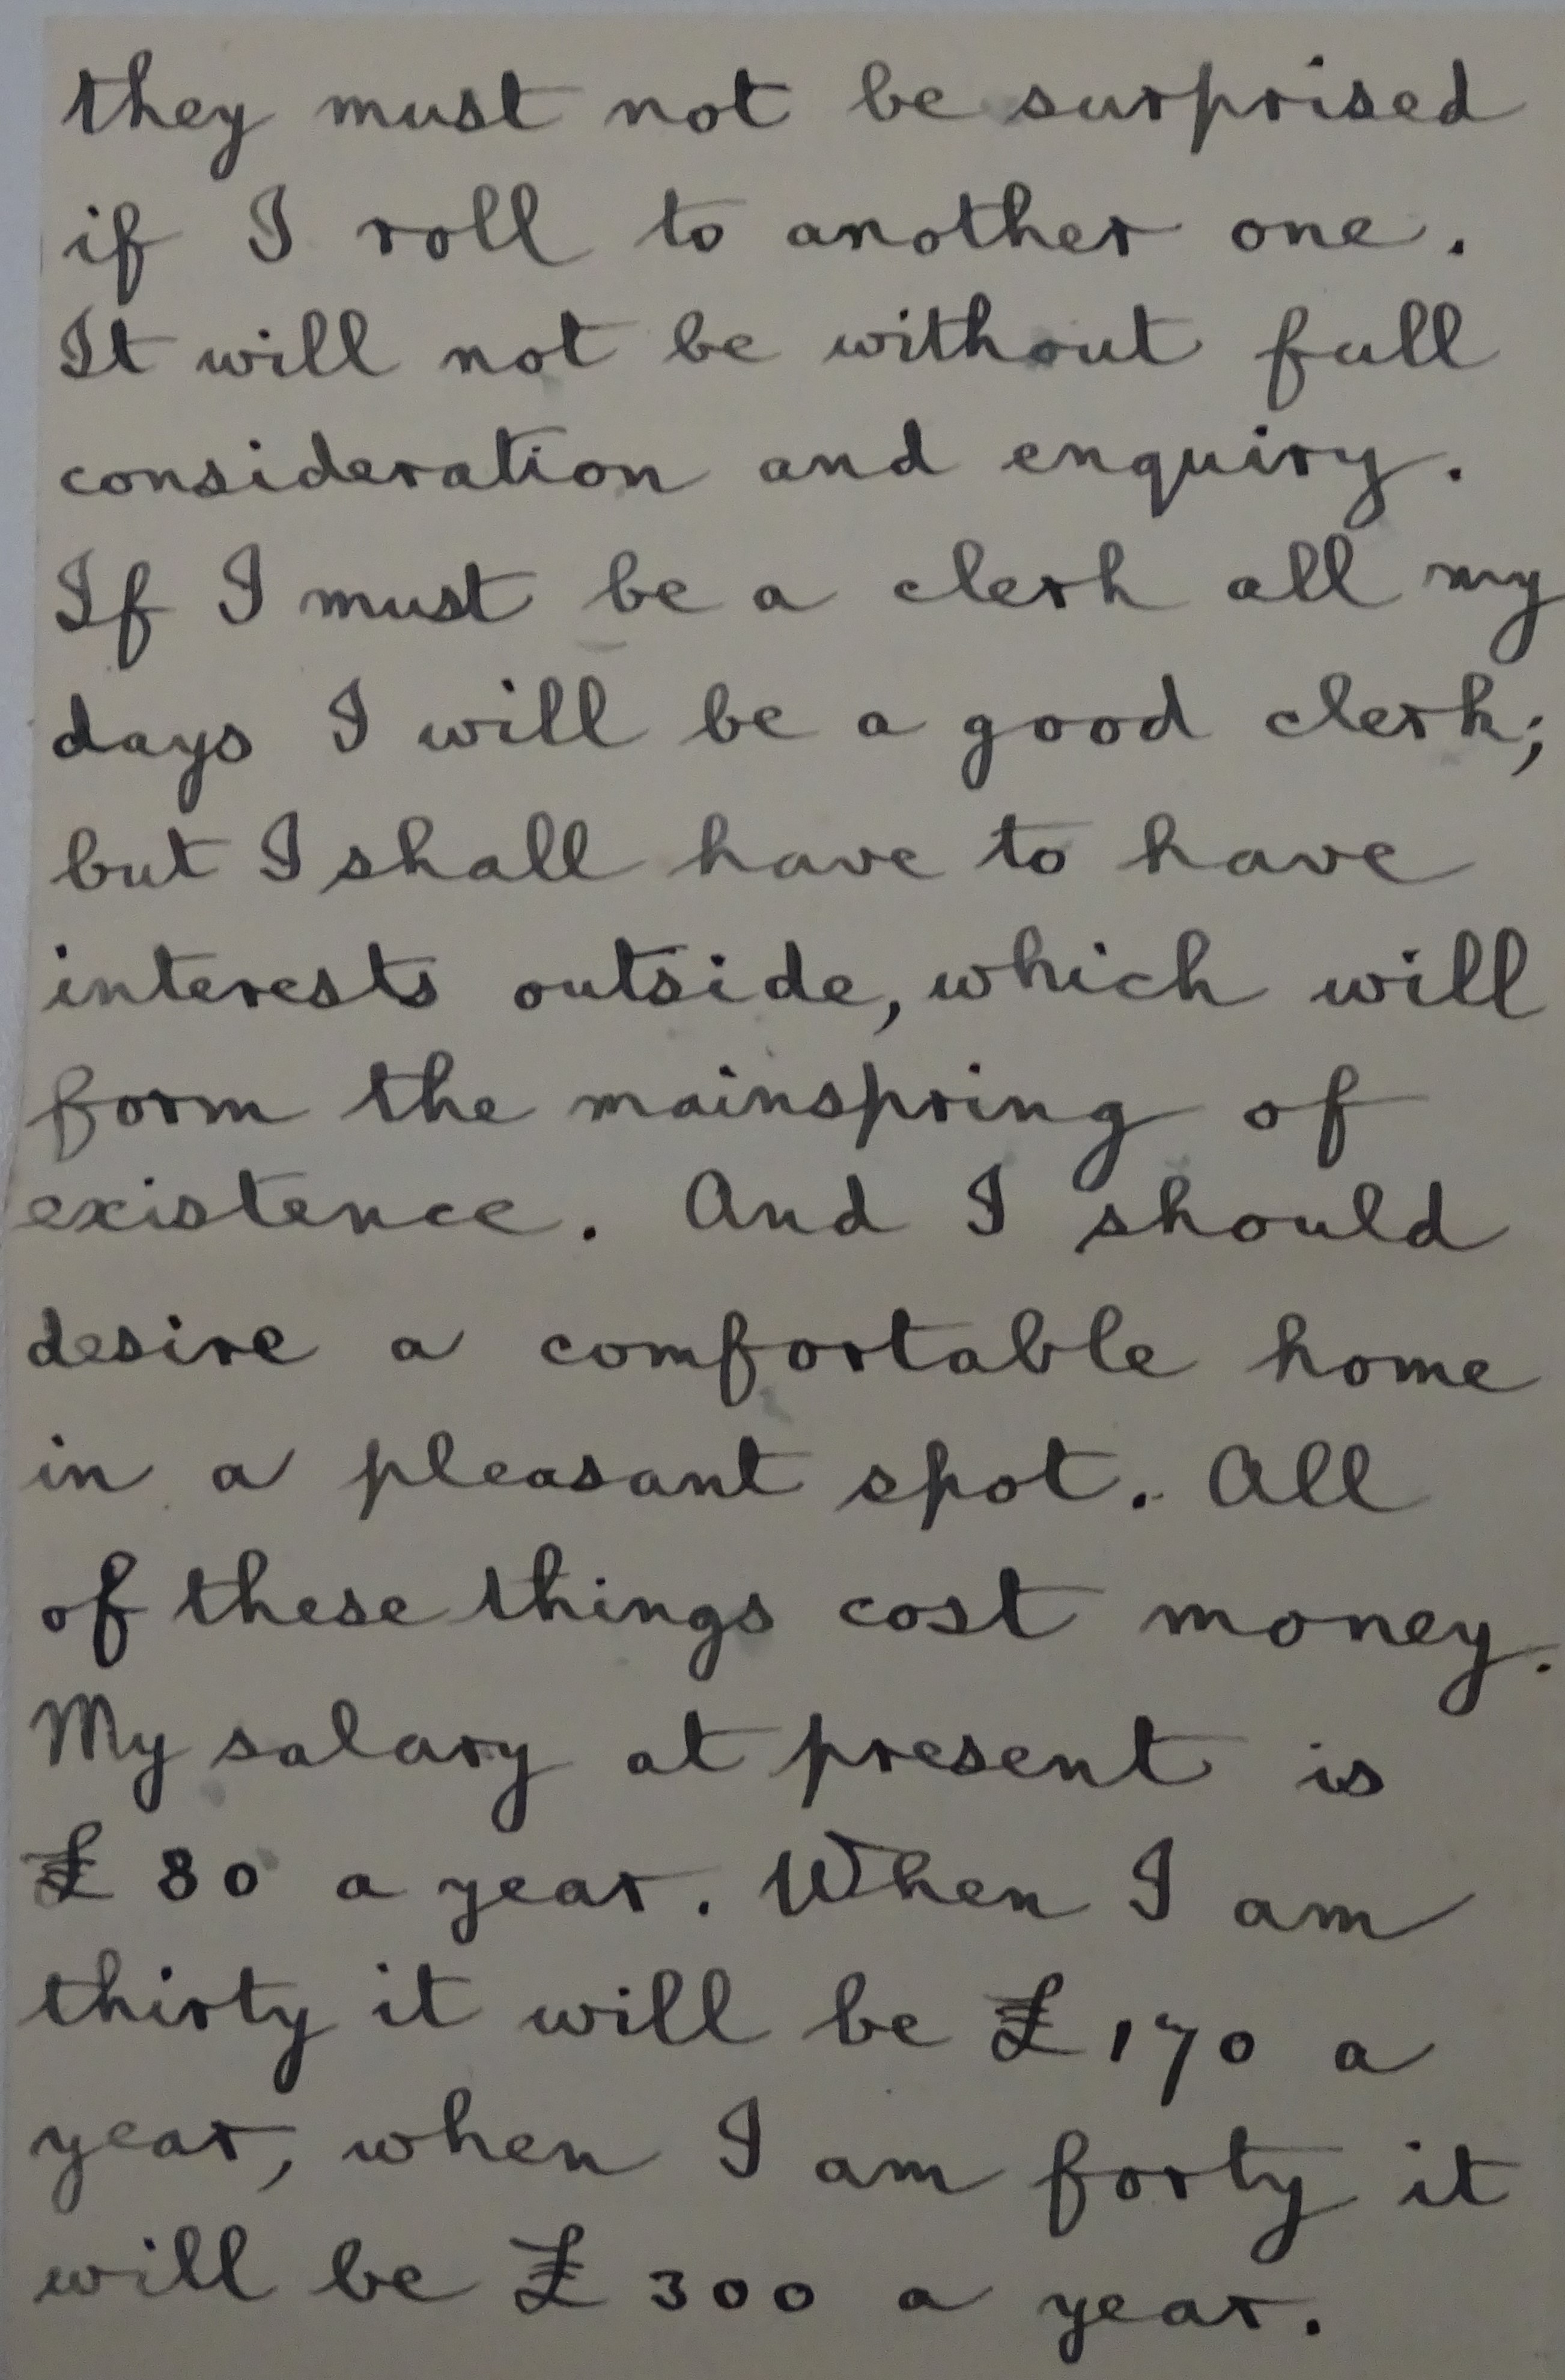 they must not be surprised
if I roll to another one.
It will not be without full
consideration and enquiry.
If I must be a clerk all my
days I will be a good clerk;
but I shall have to have
interests outside, which will
form the mainspring of
existence. And I should
desire a comfortable home
in a pleasant spot. All
of these things cost money.
My salary at present is
£80 a year. When I am
thirty it will be £170 a
year, when I am forty it
will be £300 a year.